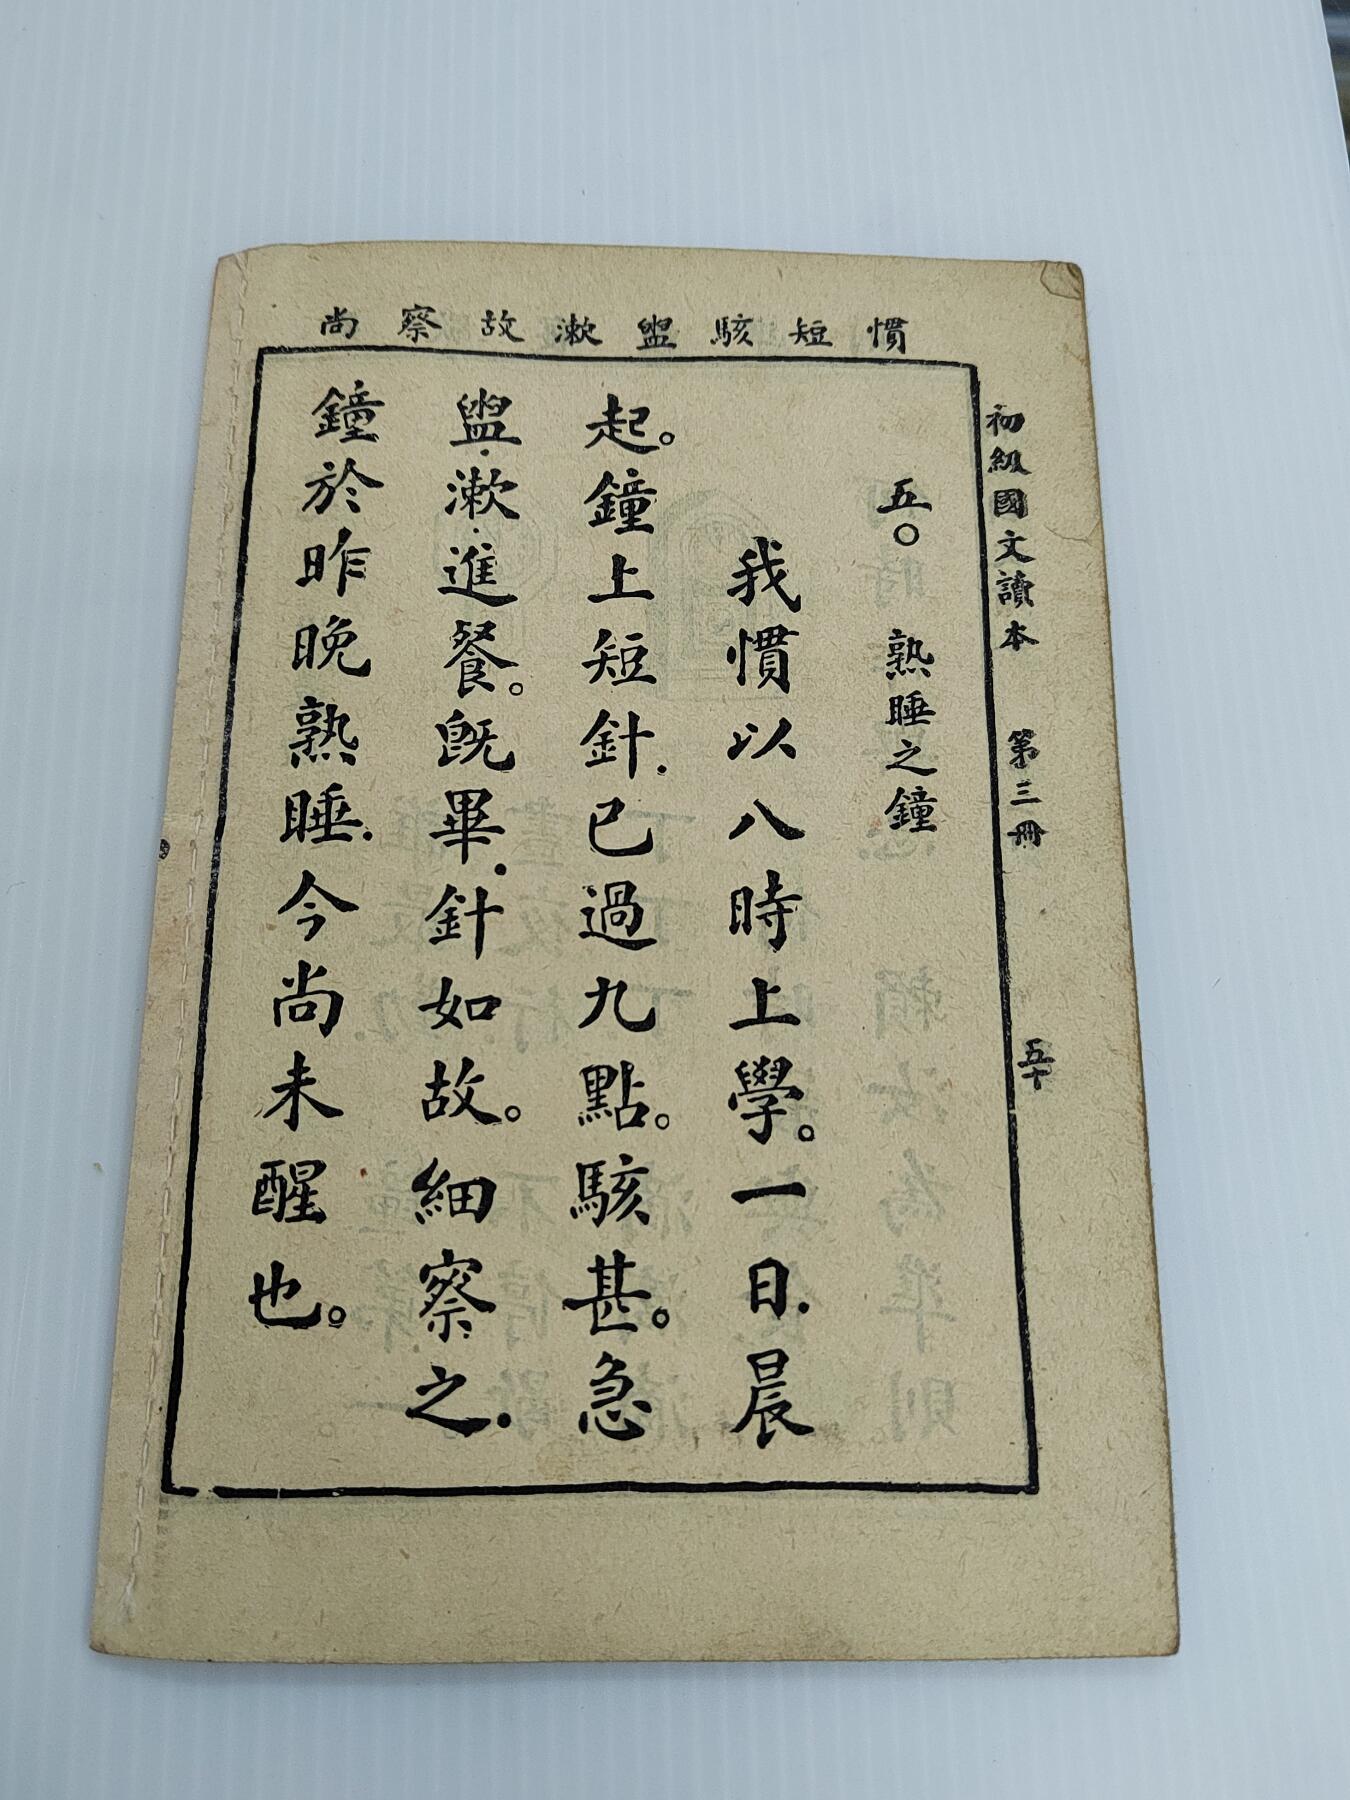 初級國文讀本 第三冊 五十
慣短駭盥漱故察尚
五〇 熟睡之鐘
我慣以八時上學。一日.晨
起。鐘上短針.已過九點。駭甚。急
盥.漱.進餐。既畢.針如故。細察之.
鐘於昨晚熟睡.今尚未醒也。